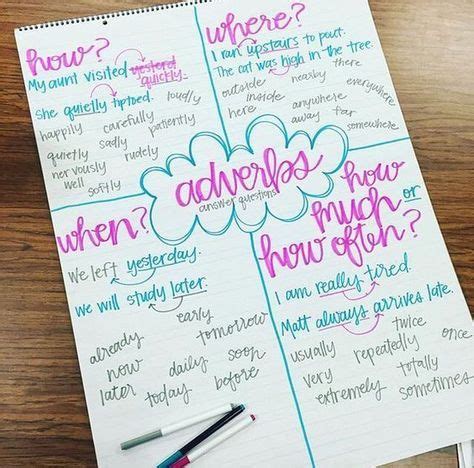 how?
My aunt visited yesterd
quickly.
She quietly tiptoed.
loudly
happily
carefully
patiently
sadly
quietly
rudely
nervously
well
softly
where?
I ran upstairs to pout.
The cat was high in the tree.
there
nearby
everywhere
outside
inside
here
anywhere
away
far
somewhere
adverbs
answer questions
when?
We left yesterday.
We will study later.
early
already
tomorrow
now
daily
soon
later
today
before
how
much or
how often?
I am really tired.
Matt always arrives late.
twice
usually
repeatedly
often
very
totally
extremely
sometimes